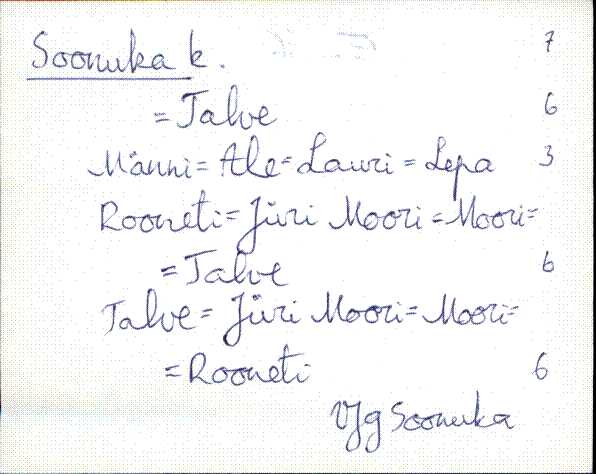 Soonuka k. 7
= Talve 6
Männi = Ale = Lauri = Lepa 3
Rooneti = Jüri Moori = Moori =
= Talve 6
Talve = Jüri Moori = Moori =
= Rooneti 6
Vjg Soonuka